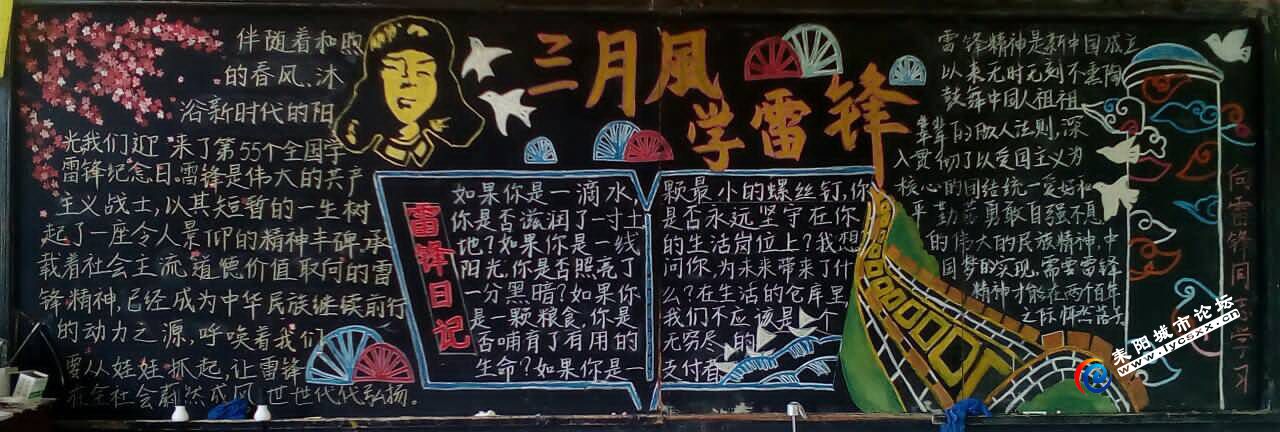 三月風
学雷锋
伴随着和煦
的春风、沐
浴新时代的阳
光我们迎来了第55个全国学
雷锋纪念日。雷锋是伟大的共产
主义战士,以其短暂的一生树
起了一座令人景仰的精神丰碑,承
载着社会主流道德价值取向的雷
锋精神,已经成为中华民族继续前行
的动力之源,呼唤着我们
要从娃娃抓起,让雷锋
在全社会蔚然成风,世世代代弘扬。
雷锋日记
如果你是一滴水,
你是否滋润了一寸土
地?如果你是一线
阳光,你是否照亮了
一分黑暗?如果你
是一颗粮食,你是
否哺育了有用的
生命?如果你是一
颗最小的螺丝钉,你
是否永远坚守在你
的生活岗位上?我想
问你,为未来带来了什
么?在生活的仓库里
我们不应该是一个
无穷尽的
支付者
雷锋精神是新中国成立
以来无时无刻不熏陶
鼓舞中国人祖祖
辈辈的做人法则,深
入贯彻了以爱国主义为
核心的团结统一爱好和
平勤劳勇敢自强不息
的伟大的民族精神,中
国梦的实现,需要雷锋
精神才能在两个百年
之际
向雷锋同志学习
耒阳城市论坛
www.lycsxx.cn